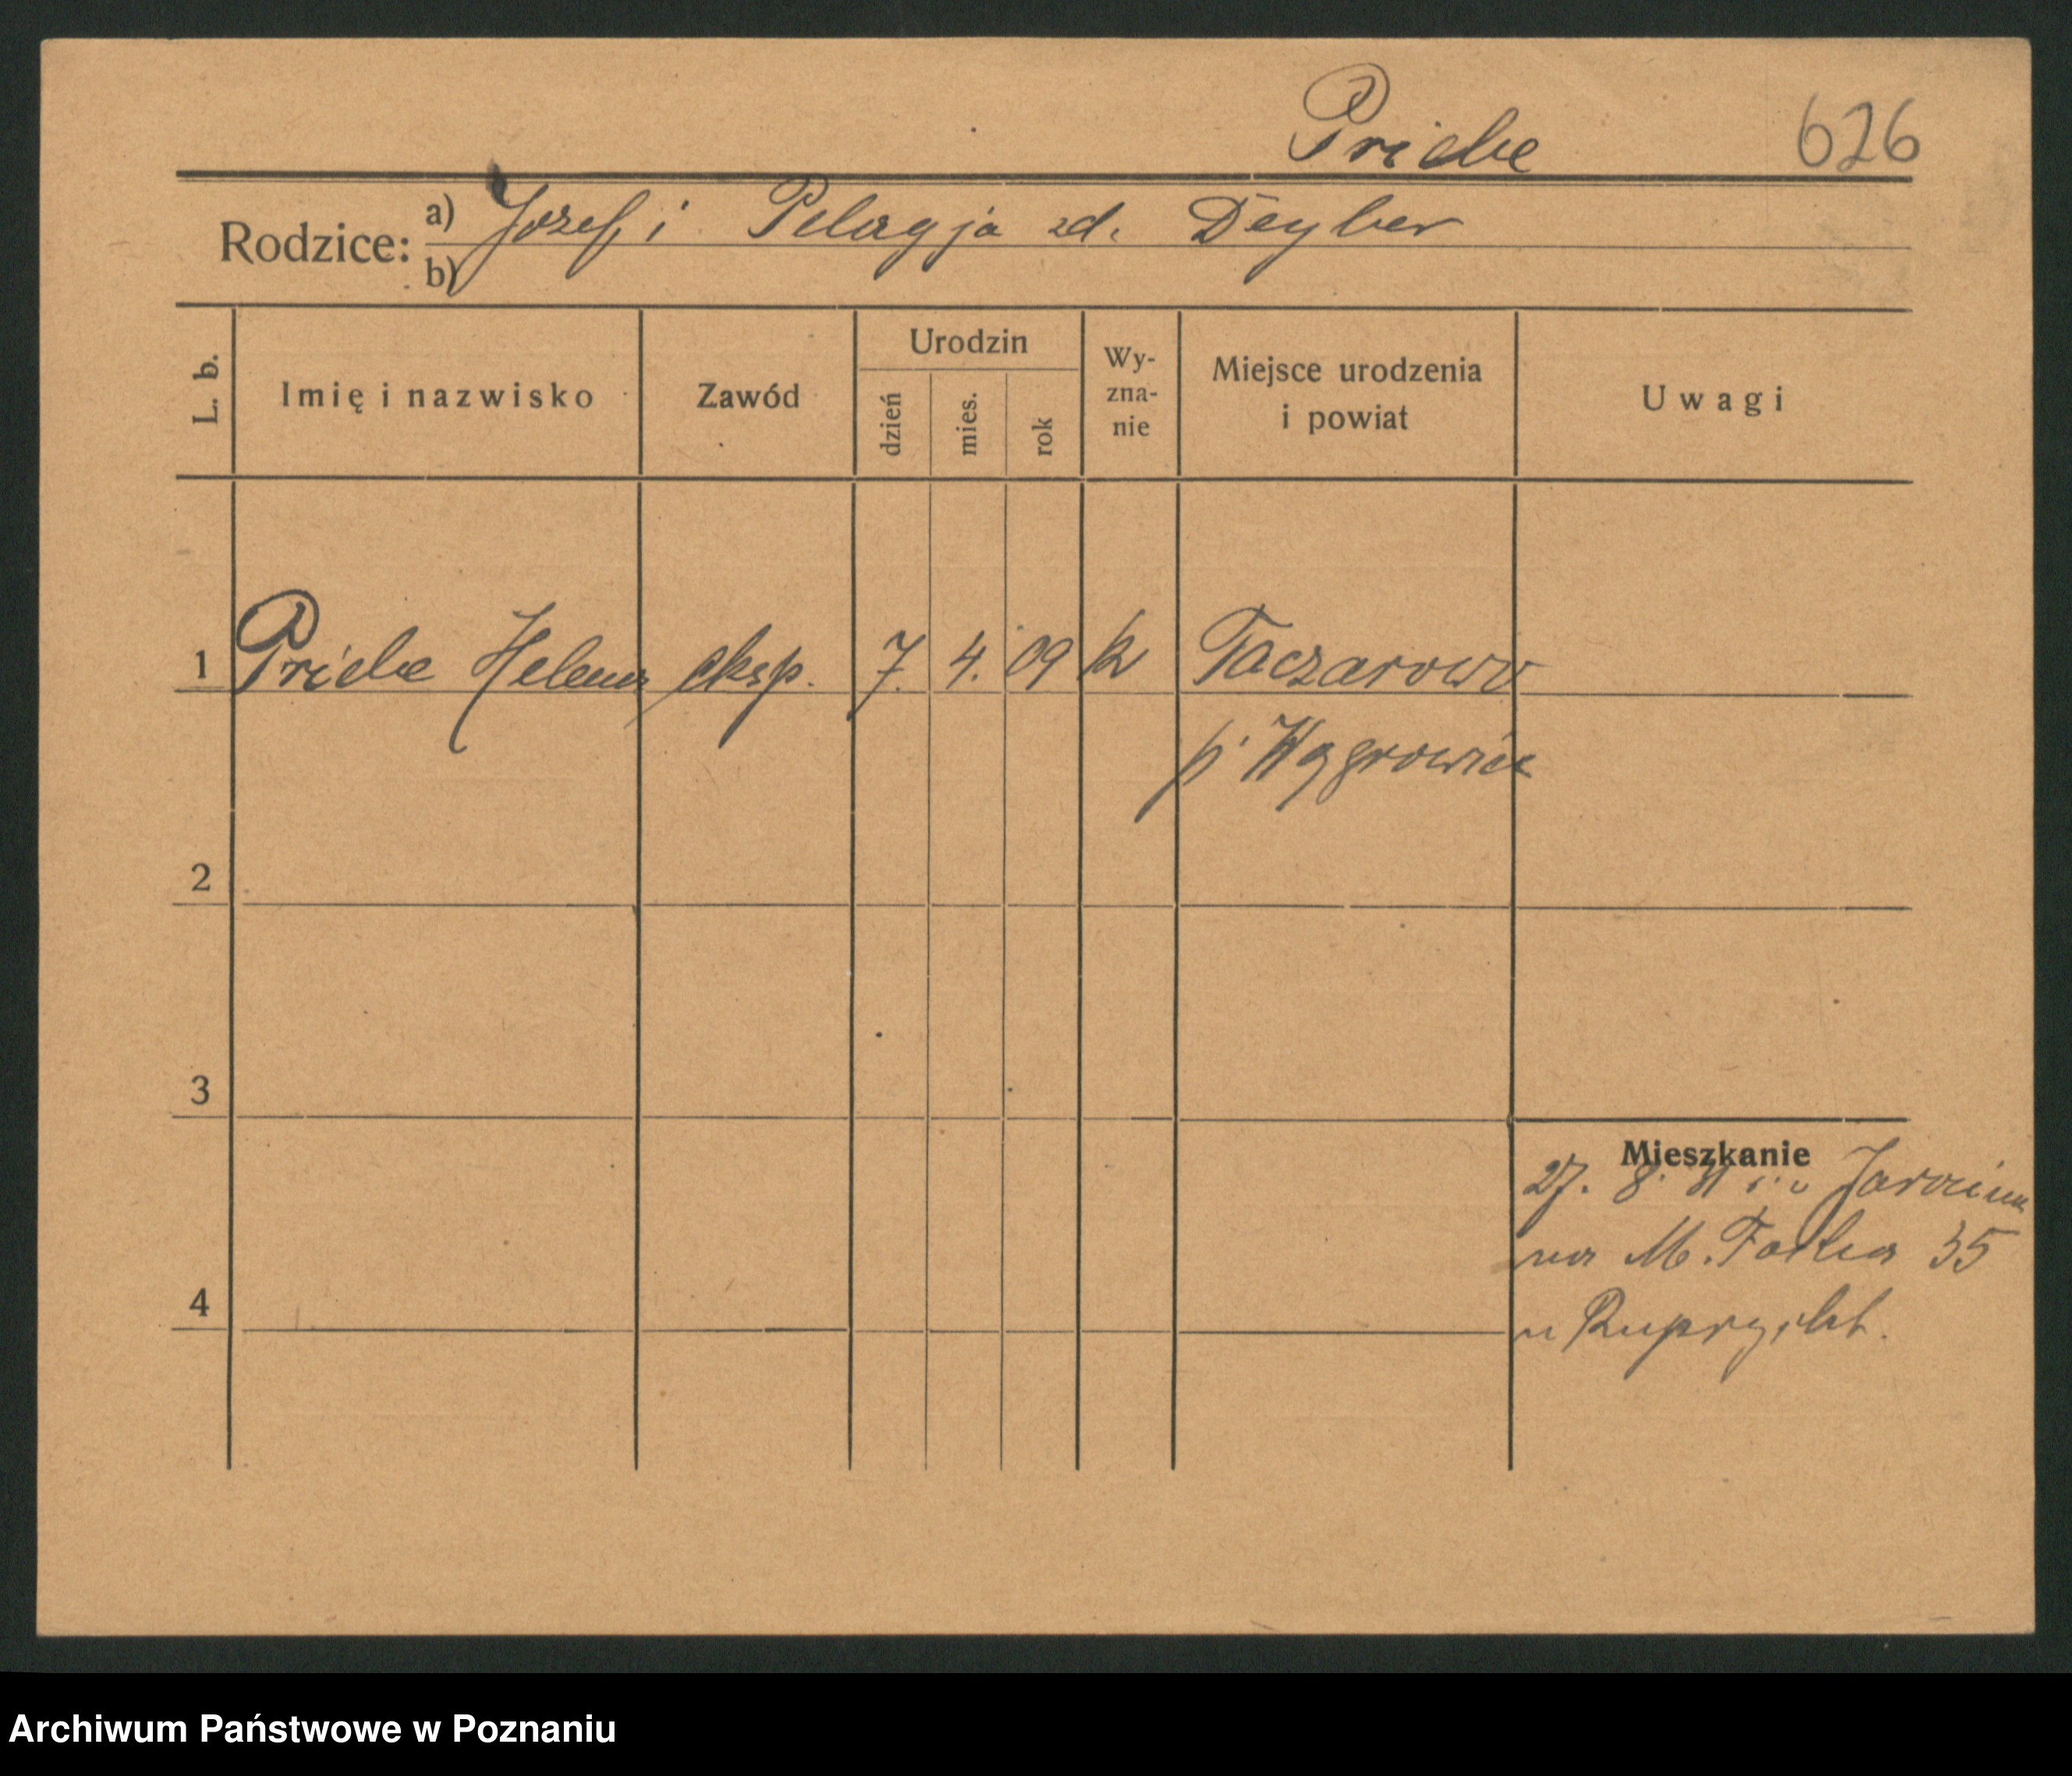 Priebe 626
Rodzice: a) Józef i Pelagja zd. Deyber
b)
L. b. Imię i nazwisko Zawód Urodzin dzień mies. rok Wy-zna-nie Miejsce urodzenia i powiat Uwagi
1 Priebe Helena eksp. 7. 4. 09 k Taczarowo
p. Wągrowiec
2
3
Mieszkanie
27. 8. 31
na M. Focha 35
4
u
Archiwum Państwowe w Poznaniu